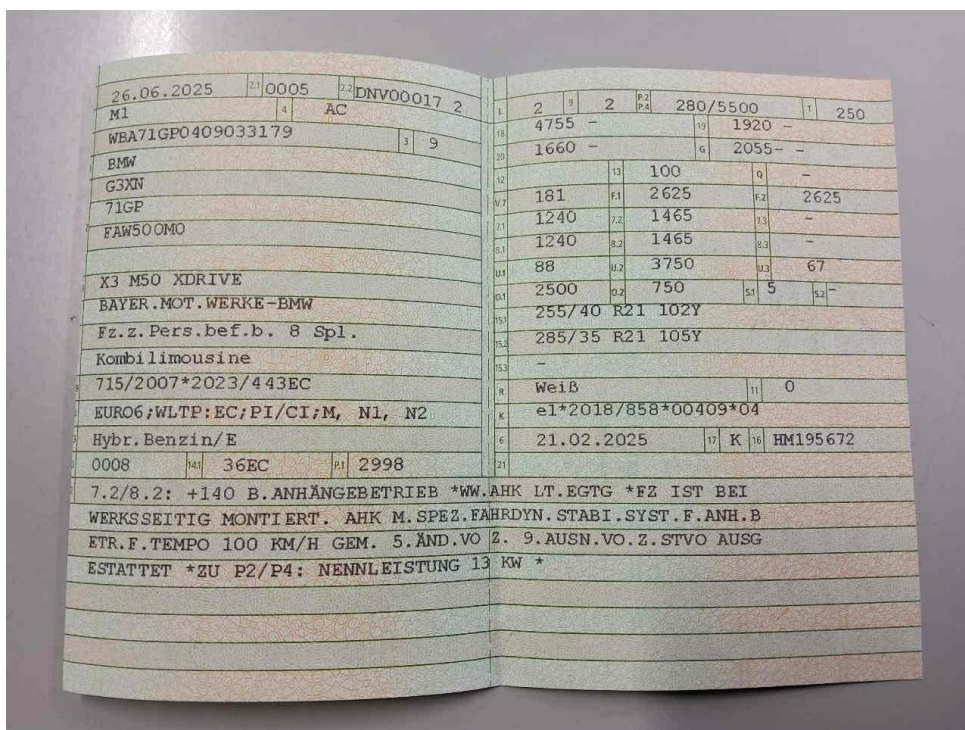 26.06.2025 2.1 0005 2.2 DNV00017 2
M1 4 AC
WBA71GP0409033179 3 9
BMW
G3XN
71GP
FAW500M0
X3 M50 XDRIVE
BAYER.MOT.WERKE-BMW
Fz.z.Pers.bef.b. 8 Spl.
Kombilimousine
715/2007*2023/443EC
EURO6;WLTP:EC;PI/CI;M, N1, N2
Hybr.Benzin/E
0008 14.1 36EC P.1 2998
L 2 9 2 P.2 P.4 280/5500 T 250
18 4755 - 19 1920 -
20 1660 - G 2055- -
12 13 100 Q -
V.7 181 F.1 2625 F.2 2625
7.1 1240 7.2 1465 7.3 -
8.1 1240 8.2 1465 8.3 -
U.1 88 U.2 3750 U.3 67
O.1 2500 O.2 750 S.1 5 S.2 -
15.1 255/40 R21 102Y
15.2 285/35 R21 105Y
15.3 -
R Weiß 11 0
K e1*2018/858*00409*04
6 21.02.2025 17 K 16 HM195672
21
7.2/8.2: +140 B.ANHÄNGEBETRIEB *WW.AHK LT.EGTG *FZ IST BEI
WERKSSEITIG MONTIERT. AHK M.SPEZ.FAHRDYN.STABI.SYST.F.ANH.B
ETR.F.TEMPO 100 KM/H GEM. 5.ÄND.VO Z. 9.AUSN.VO.Z.STVO AUSG
ESTATTET *ZU P2/P4: NENNLEISTUNG 13 KW *